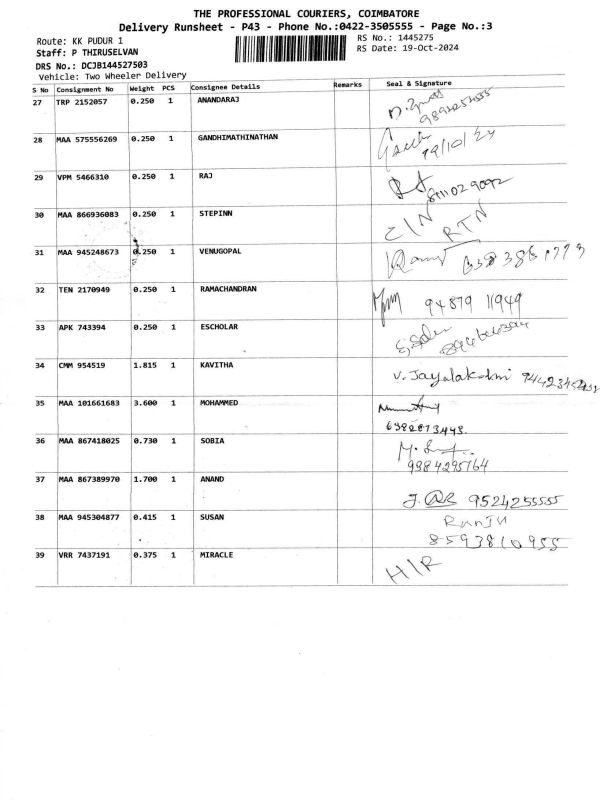 THE PROFESSIONAL COURIERS, COIMBATORE
Delivery Runsheet - P43 - Phone No.:0422-3505555 - Page No.:3
Route: KK PUDUR 1
RS No.: 1445275
Staff: P THIRUSELVAN
RS Date: 19-Oct-2024
DRS No.: DCJB144527503
Vehicle: Two Wheeler Delivery
S No Consignment No Weight PCS Consignee Details Remarks Seal & Signature
27 TRP 2152057 0.250 1 ANANDARAJ
28 MAA 575556269 0.250 1 GANDHIMATHINATHAN
19/10/24
29 VPM 5466310 0.250 1 RAJ
30 MAA 866936083 0.250 1 STEPINN
RTN
31 MAA 945248673 0.250 1 VENUGOPAL
32 TEN 2170949 0.250 1 RAMACHANDRAN
94879 11949
33 APK 743394 0.250 1 ESCHOLAR
34 CMM 954519 1.815 1 KAVITHA
V. Jayalakshmi
35 MAA 101661683 3.600 1 MOHAMMED
6382873443.
36 MAA 867418025 0.730 1 SOBIA
9384295164
37 MAA 867389970 1.700 1 ANAND
9524255555
38 MAA 945304877 0.415 1 SUSAN
8593810955
39 VRR 7437191 0.375 1 MIRACLE
H/R